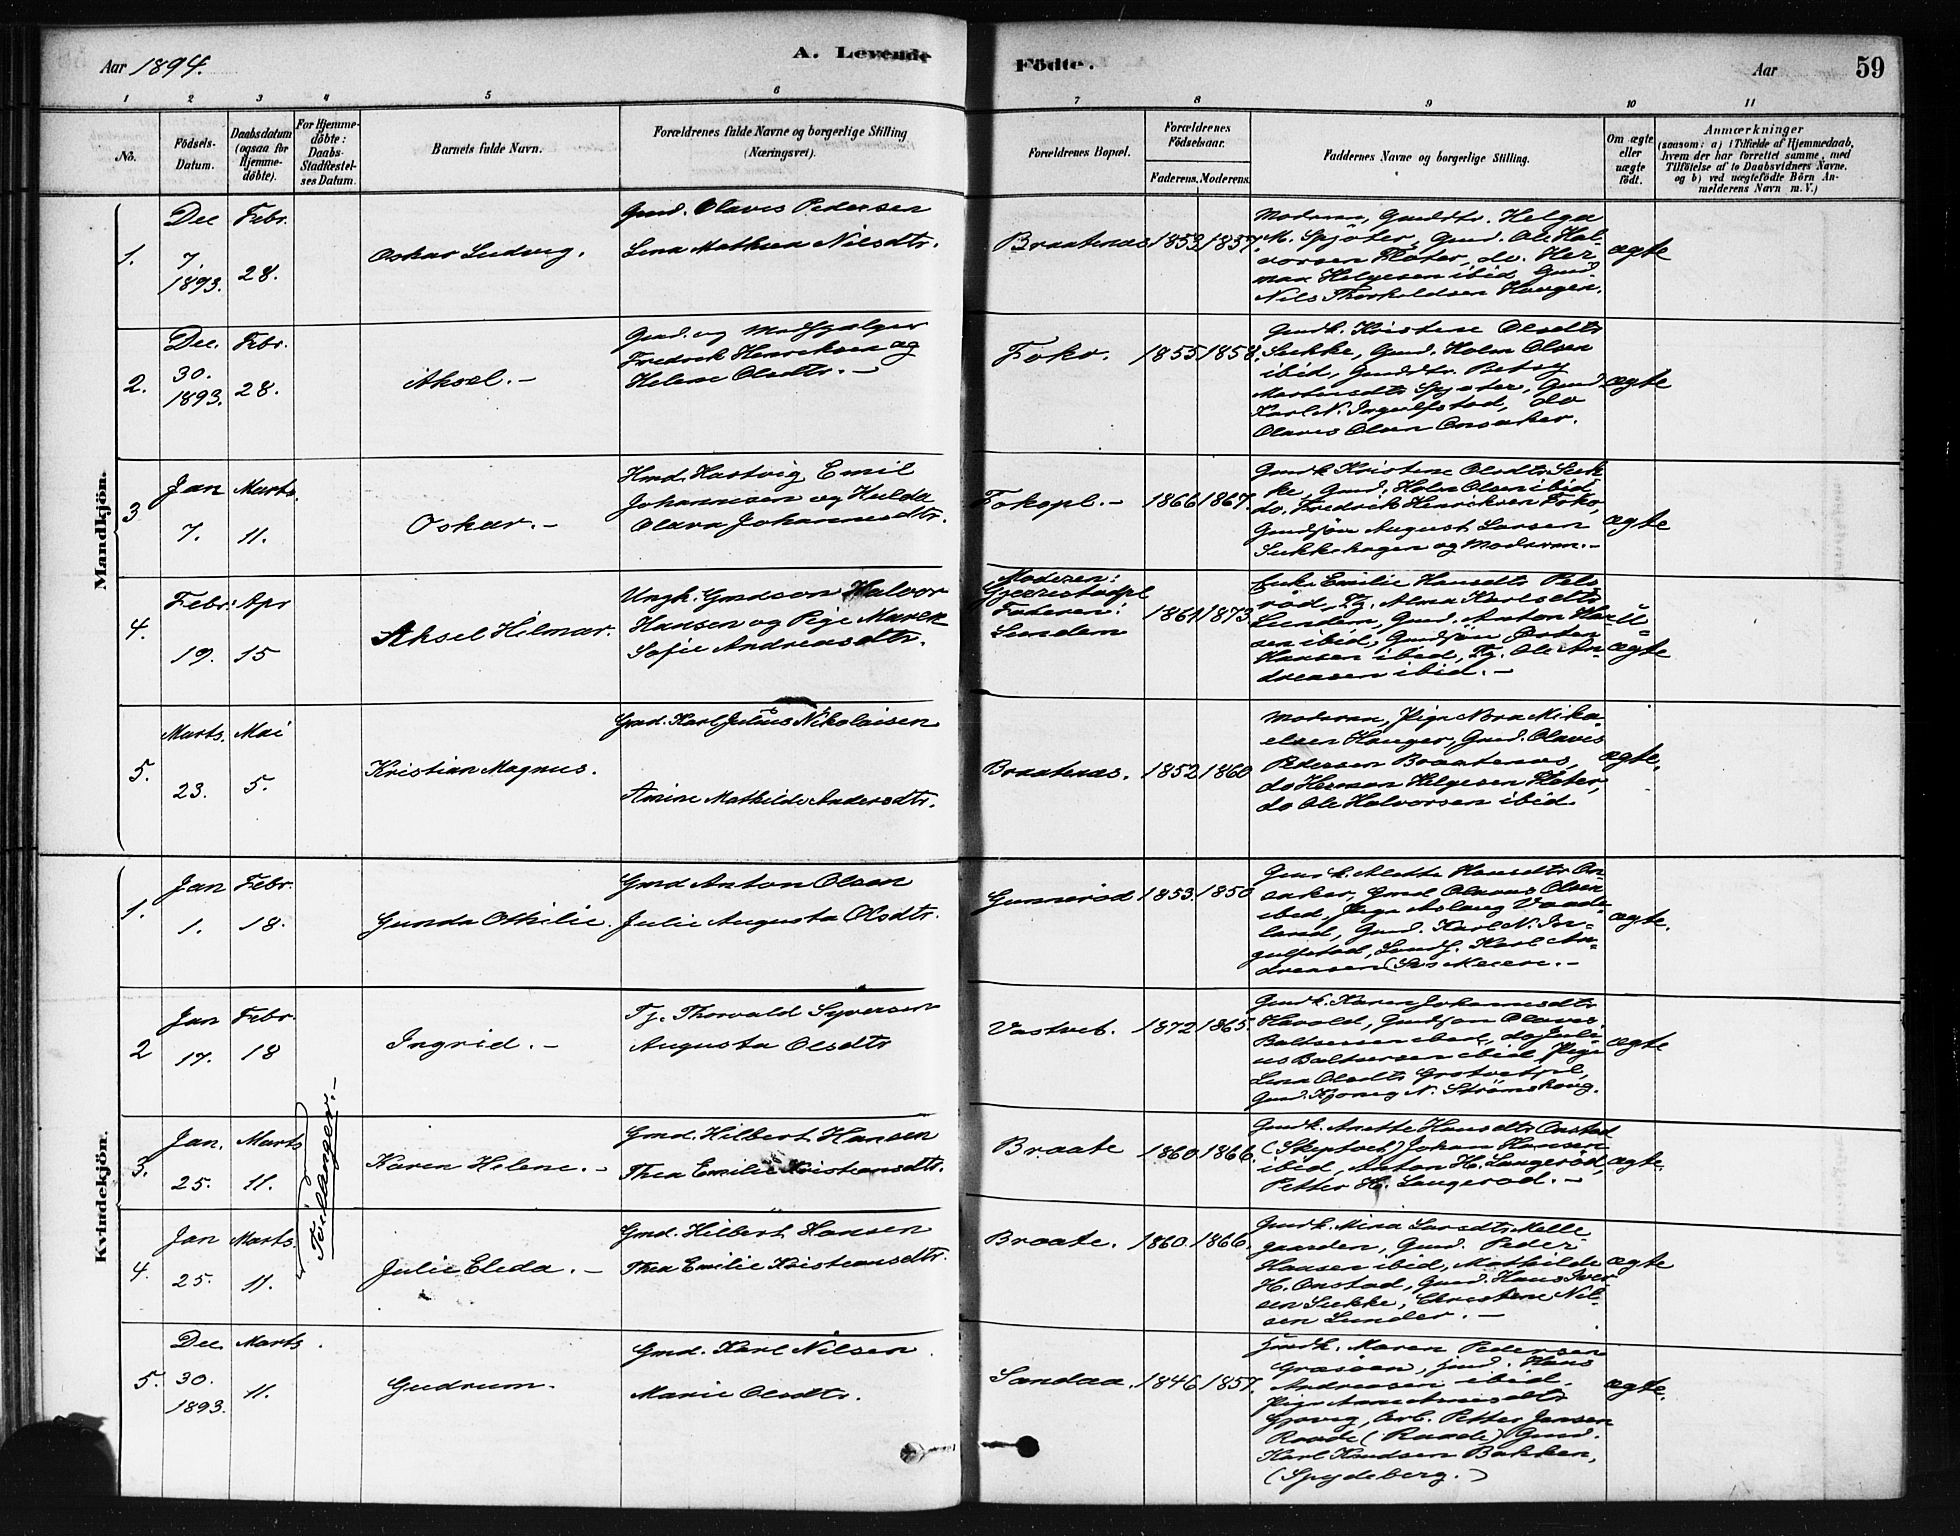 Aar 1894.
A. Levende
Födte.
Aar
59
1 2 3 4 5 6 7 8 9 10 11
No.
Födsels-
Datum.
Daabsdatum
(ogsaa for
Hjemme-
döbte).
For Hjemme-
döbte:
Daabs-
Stadfæstel-
ses Datum.
Barnets fulde Navn.
Forældrenes fulde Navne og borgerlige Stilling
(Næringsvei).
Forældrenes Bopæl.
Forældrenes
Födselsaar.
Faderens. Moderens.
Faddernes Navne og borgerlige Stilling.
Om ægte
eller
uægte
födt.
Anmærkninger
(saasom: a) i Tilfælde af Hjemmedaab,
hvem der har forrettet samme, med
Tilföielse af to Daabsvidners Navne.
og b) ved uægtefödte Börn An-
melderens Navn m. V.)
Mandkjön.
1.
Dec
7.
1893.
Febr.
28.
Oskar Ludvig.
Gmd. Olaves Pedersen
Lena Mathea Nilsdtr.
Braatenæs 1853 1857.
Moderen, Gmddtr. Helga
M. Spjöter, Gmd. Ole Hal-
vorsen Flöter, do. Her-
man Helgesen ibid, Gmd.
Nils Thorkeldsen Haugen.
ægte
2.
Dec.
30.
1893.
Febr.
28.
Aksel.-
Gmd. og
Fredrik Henriksen og
Helene Olsdtr.-
Foko. 1855 1858.
Gmdk. Kristene Olsdtr
Sukke, Gmd. Holm Olsen
ibid, Gmddtr. Betsy
Martensdtr Spjöter, Gmd
Karl N. Ingulfstad, do
Olaves Olsen Onsaker.
ægte
3
Jan
7.
Marts.
11.
Oskar.-
Hmd. Hartvig Emil
Johannesen og Hulda
Olava Johannesdtr.
Fokopl.- 1866 1867.
Gmdk Kristene Olsdtr Suk
ke, Gmd. Holm Olsen ibid,
do. Fredrik Henriksen Foko,
Gmdsön August Larsen
Sukkehagen og Moderen.-
ægte
4.
Febr.
19.
Apr
15
Aksel Hilmar.
Ungk. Gmdsøn Halvor
Hansen og Pige Maren
Sofie Andreasdtr.
Moderen:
Faderen:
Lundem
1861 1873
Enke Emilie Hansdtr Pels
röd, Tj. Alma Karlsdtr
Lundem, Gmd. Anton Han
sen ibid, Gmdsön
Hansen ibid, Tj. Ole An-
dreasen ibid.-
u-
ægte
5.
Marts.
23.
Mai
5.
Kristian Magnus.
Gmd. Karl Julius Nikolaisen
Amine Mathilde Andersdtr.
Braatenæs. 1852 1860
Moderen, Pige Nora Mika-
elsen Hauger, Gmd. Olaves
Pedersen Braatenæs,
do Herman Helgesen Flöter,
do Ole Halvorsen ibid.
ægte.
Kvindekjön.
1.
Jan
1.
Febr.
18.
Gunda Othilie.
Gmd Anton Olsen
Julie Augusta Olsdtr.
Gunneröd 1853. 1850
Gmdk. Alette Hansdtr On-
saker, Gmd Olaves Olsen
ibid, Pige Aslaug Vaade-
land, Gmd. Karl N. In-
gulfstad, Landh. Karl An-
dreasen (Sæs Meieri.-
ægte.
2
Jan
17.
Febr.
18
Ingrid.-
Tj. Thorvald Syversen
Augusta Olsdtr
Vastvet. 1872 1865.
Gmdk. Karen Johannesdtr
Harold, Gmdsön Olaves
Baltsersen ibid, do Juli-
us Baltsersen ibid, Pige
Lina Olsdtr Grotvetpl,
Gmd. N. Strömshaug.
ægte
3.
Jan.
25.
Marts
11.
Tvillinger.-
Karen Helene.-
Gmd. Hilbert Hansen
Thea Emilie Kristiansdtr.
Braate 1860 1866.
Gmdk. Anette Hansdtr Onstad
(Skiptvet) Johan Hansen
ibid, Anton H. Langeröd,
Petter H. Langeröd.-
ægte.
4.
Jan
25.
Marts.
11.
Julie Eleda.-
Gmd. Hilbert Hansen
Thea Emilie Kristiansdtr.
Braate. 1860. 1866.
Gmdk. Mina Larsdtr Melle
gaarden, Gmd. Peder
Hansen ibid, Mathilde
H. Onstad, Gmd. Hans Iver
sen Sukke, Christine Nil-
sen Lunder.-
ægte
5.
Dec.
30.
1893.
Marts.
11.
Gudrum.
Gmd. Karl Nilsen
Marie Olsdtr.
Sandaa. 1846 1857.
Gmdk. Maren Pedersen
Græsoen, Gmd. Hans
Andreasen ibid.
Pige Anna
Gjövig, Arb. Petter Jansen
Raade (Raade) Gmd.
Karl Knudsen Bakken,
(Spydeberg.)
ægte.